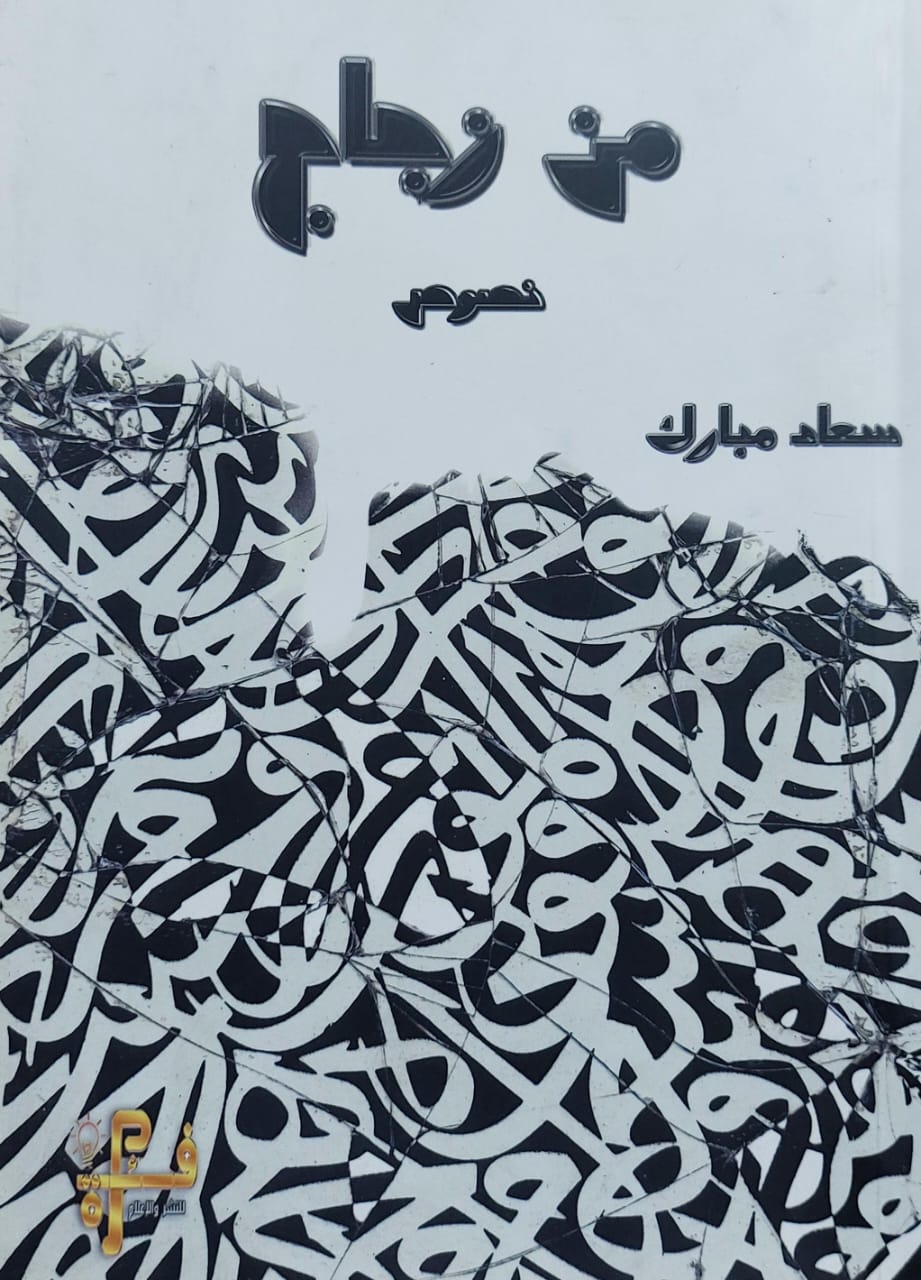 من زجاج
نصوص
سعاد مبارك
فكرة
للنشر والإعلام